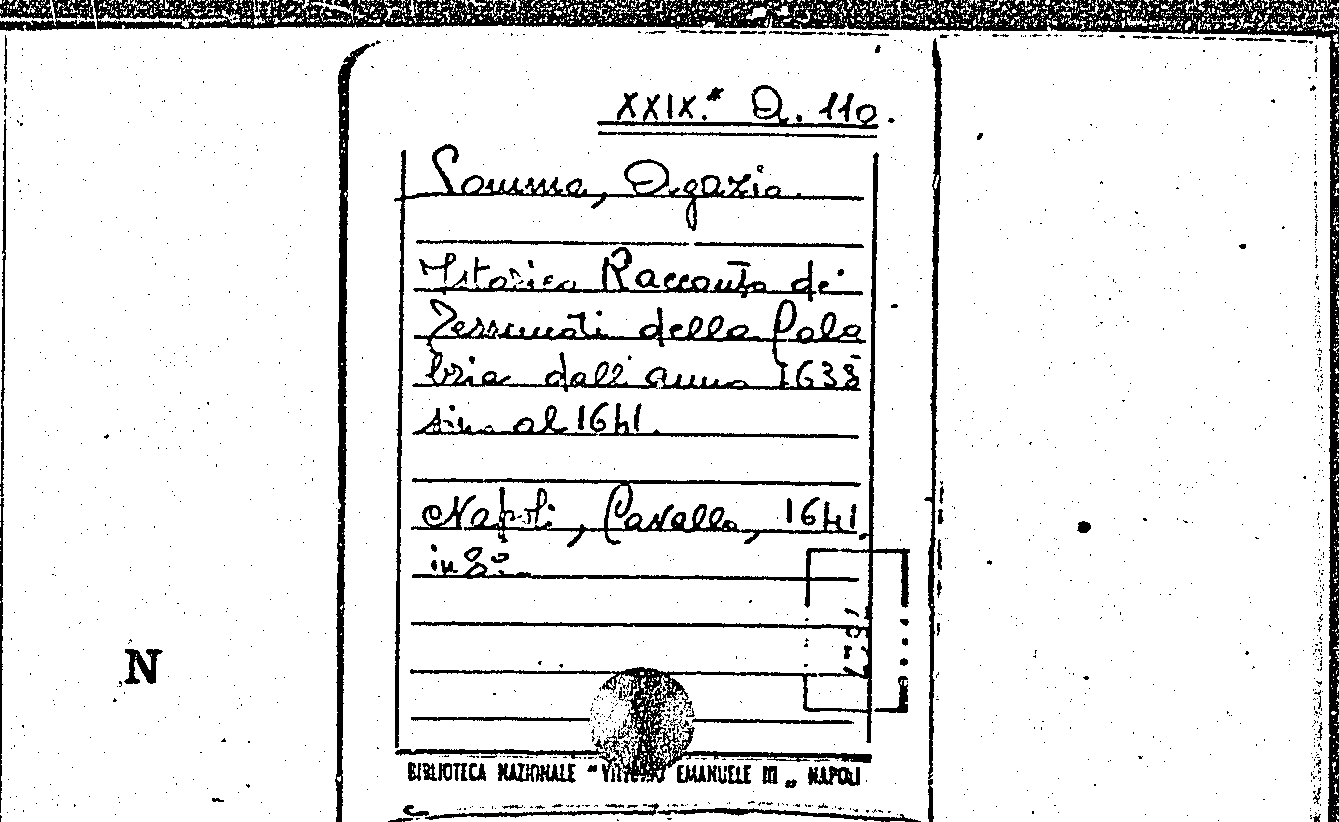 XXIX.* Q. 110.
Somma, Agazio.
Istorico Racconto dei
Terremoti della Cala
bria dall'anno 1638
sino al 1641.
Napoli, Cavallo, 1641.
in 8º.
N
BIBLIOTECA NAZIONALE "VITTORIO EMANUELE III„ NAPOLI